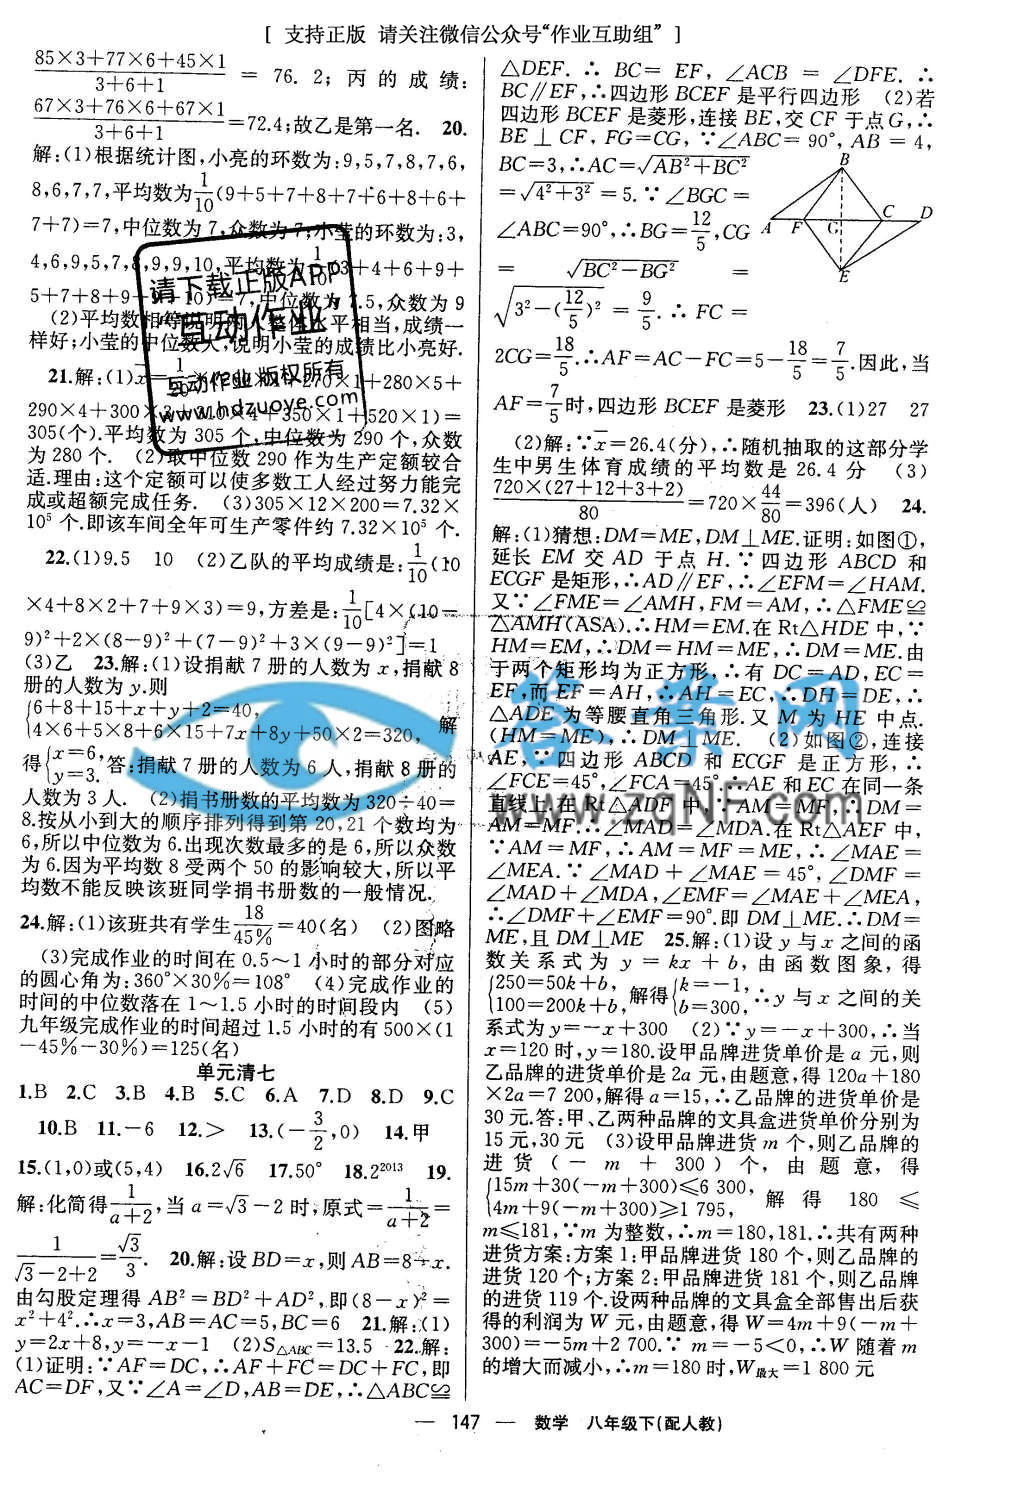 [ 支持正版 请关注微信公众号“作业互助组” ]
85×3+77×6+45×1/3+6+1 = 76. 2;丙的成绩:
67×3+76×6+67×1/3+6+1 =72.4;故乙是第一名. 20.
解:(1)根据统计图,小亮的环数为:9,5,7,8,7,6,
8,6,7,7,平均数为1/10(9+5+7+8+7+6+8+6+
7+7)=7,中位数为7,众数为7;小莹的环数为:3,
4,6,9,5,7,8,9,9,10,平均数为1/10(3+4+6+9+
5+7+8+9+9+10)=7,中位数为7.5,众数为9
(2)平均数相等说明两人整体水平相当,成绩一
样好;小莹的中位数大,说明小莹的成绩比小亮好.
21.解:(1)x̄=1/20×(260×1+270×1+280×5+
290×4+300×3+310×4+350×1+520×1)=
305(个).平均数为305个,中位数为290个,众数
为280个. (2)取中位数290作为生产定额较合
适.理由:这个定额可以使多数工人经过努力能完
成或超额完成任务. (3)305×12×200=7.32×
10⁵个.即该车间全年可生产零件约7.32×10⁵个.
22.(1)9.5 10 (2)乙队的平均成绩是:1/10(10
×4+8×2+7+9×3)=9,方差是:1/10[4×(10-
9)²+2×(8-9)²+(7-9)²+3×(9-9)²]=1
(3)乙 23.解:(1)设捐献7册的人数为x,捐献8
册的人数为y.则
{6+8+15+x+y+2=40,
4×6+5×8+6×15+7x+8y+50×2=320, 解
得{x=6, y=3. 答:捐献7册的人数为6人,捐献8册的
人数为3人. (2)捐书册数的平均数为320÷40=
8.按从小到大的顺序排列得到第20,21个数均为
6,所以中位数为6.出现次数最多的是6,所以众数
为6.因为平均数8受两个50的影响较大,所以平
均数不能反映该班同学捐书册数的一般情况.
24.解:(1)该班共有学生18/45%=40(名) (2)图略
(3)完成作业的时间在0.5~1小时的部分对应
的圆心角为:360°×30%=108° (4)完成作业的
时间的中位数落在1~1.5小时的时间段内 (5)
九年级完成作业的时间超过1.5小时的有500×(1
-45%-30%)=125(名)
单元清七
1.B 2.C 3.B 4.B 5.C 6.A 7.D 8.D 9.C
10.B 11.-6 12.> 13.(-3/2,0) 14.甲
15.(1,0)或(5,4) 16.2√6 17.50° 18.2²⁰¹³ 19.
解:化简得1/a+2,当a=√3-2时,原式=1/a+2=
1/√3-2+2=√3/3. 20.解:设BD=x,则AB=8-x.
由勾股定理得AB²=BD²+AD²,即(8-x)²=
x²+4².∴x=3,AB=AC=5,BC=6 21.解:(1)
y=2x+8,y=-x-1 (2)S△ABC=13.5 22.解:
(1)证明:∵AF=DC,∴AF+FC=DC+FC,即
AC=DF,又∵∠A=∠D,AB=DE,∴△ABC≌
△DEF.∴BC=EF,∠ACB=∠DFE.∴
BC∥EF,∴四边形BCEF是平行四边形 (2)若
四边形BCEF是菱形,连接BE,交CF于点G,∴
BE⊥CF,FG=CG,∵∠ABC=90°,AB=4,
BC=3,∴AC=√AB²+BC²
=√4²+3²=5.∵∠BGC=
∠ABC=90°,∴BG=12/5,CG
=√BC²-BG²=
√3²-(12/5)²=9/5.∴FC=
B
A F G C D
E
2CG=18/5.∴AF=AC-FC=5-18/5=7/5.因此,当
AF=7/5时,四边形BCEF是菱形 23.(1)27 27
(2)解:∵x̄=26.4(分),∴随机抽取的这部分学
生中男生体育成绩的平均数是26.4分 (3)
720×(27+12+3+2)/80=720×44/80=396(人) 24.
解:(1)猜想:DM=ME,DM⊥ME.证明:如图①,
延长EM交AD于点H.∵四边形ABCD和
ECGF是矩形,∴AD∥EF,∴∠EFM=∠HAM.
又∵∠FME=∠AMH,FM=AM,∴△FME≌
△AMH(ASA).∴HM=EM.在Rt△HDE中,∵
HM=EM,∴DM=HM=ME,∴DM=ME.由
于两个矩形均为正方形,∴有DC=AD,EC=
EF,而EF=AH,∴AH=EC,∴DH=DE,∴
△ADE为等腰直角三角形.又M为HE中点.
(HM=ME),∴DM⊥ME. (2)如图②,连接
AE,∵四边形ABCD和ECGF是正方形,∴
∠FCE=45°,∠FCA=45°∴AE和EC在同一条
直线上.在Rt△ADF中,∵AM=MF,∴DM=
AM=MF.∴∠MAD=∠MDA.在Rt△AEF中,
∵AM=MF,∴AM=MF=ME,∴∠MAE=
∠MEA.∵∠MAD+∠MAE=45°,∠DMF=
∠MAD+∠MDA,∠EMF=∠MAE+∠MEA,
∴∠DMF+∠EMF=90°.即DM⊥ME.∴DM=
ME,且DM⊥ME 25.解:(1)设y与x之间的函
数关系式为y=kx+b,由函数图象,得
{250=50k+b, 100=200k+b, 解得{k=-1, b=300, ∴y与x之间的关
系式为y=-x+300 (2)∵y=-x+300,∴当
x=120时,y=180.设甲品牌进货单价是a元,则
乙品牌的进货单价是2a元,由题意,得120a+180
×2a=7 200,解得a=15,∴乙品牌的进货单价是
30元.答:甲、乙两种品牌的文具盒进货单价分别为
15元,30元 (3)设甲品牌进货m个,则乙品牌的
进货(-m+300)个,由题意,得
{15m+30(-m+300)≤6 300,
4m+9(-m+300)≥1 795, 解得180≤
m≤181,∵m为整数,∴m=180,181.∴共有两种
进货方案:方案1:甲品牌进货180个,则乙品牌的
进货120个;方案2:甲品牌进货181个,则乙品牌
的进货119个.设两种品牌的文具盒全部售出后获
得的利润为W元,由题意,得W=4m+9(-m+
300)=-5m+2 700.∵k=-5<0,∴W随着m
的增大而减小,∴m=180时,W最大=1 800元
请下载正版APP
互动作业
互动作业 版权所有
www.hdzuoye.com
答案网
www.zqNF.com
— 147 — 数学 八年级下(配人教)